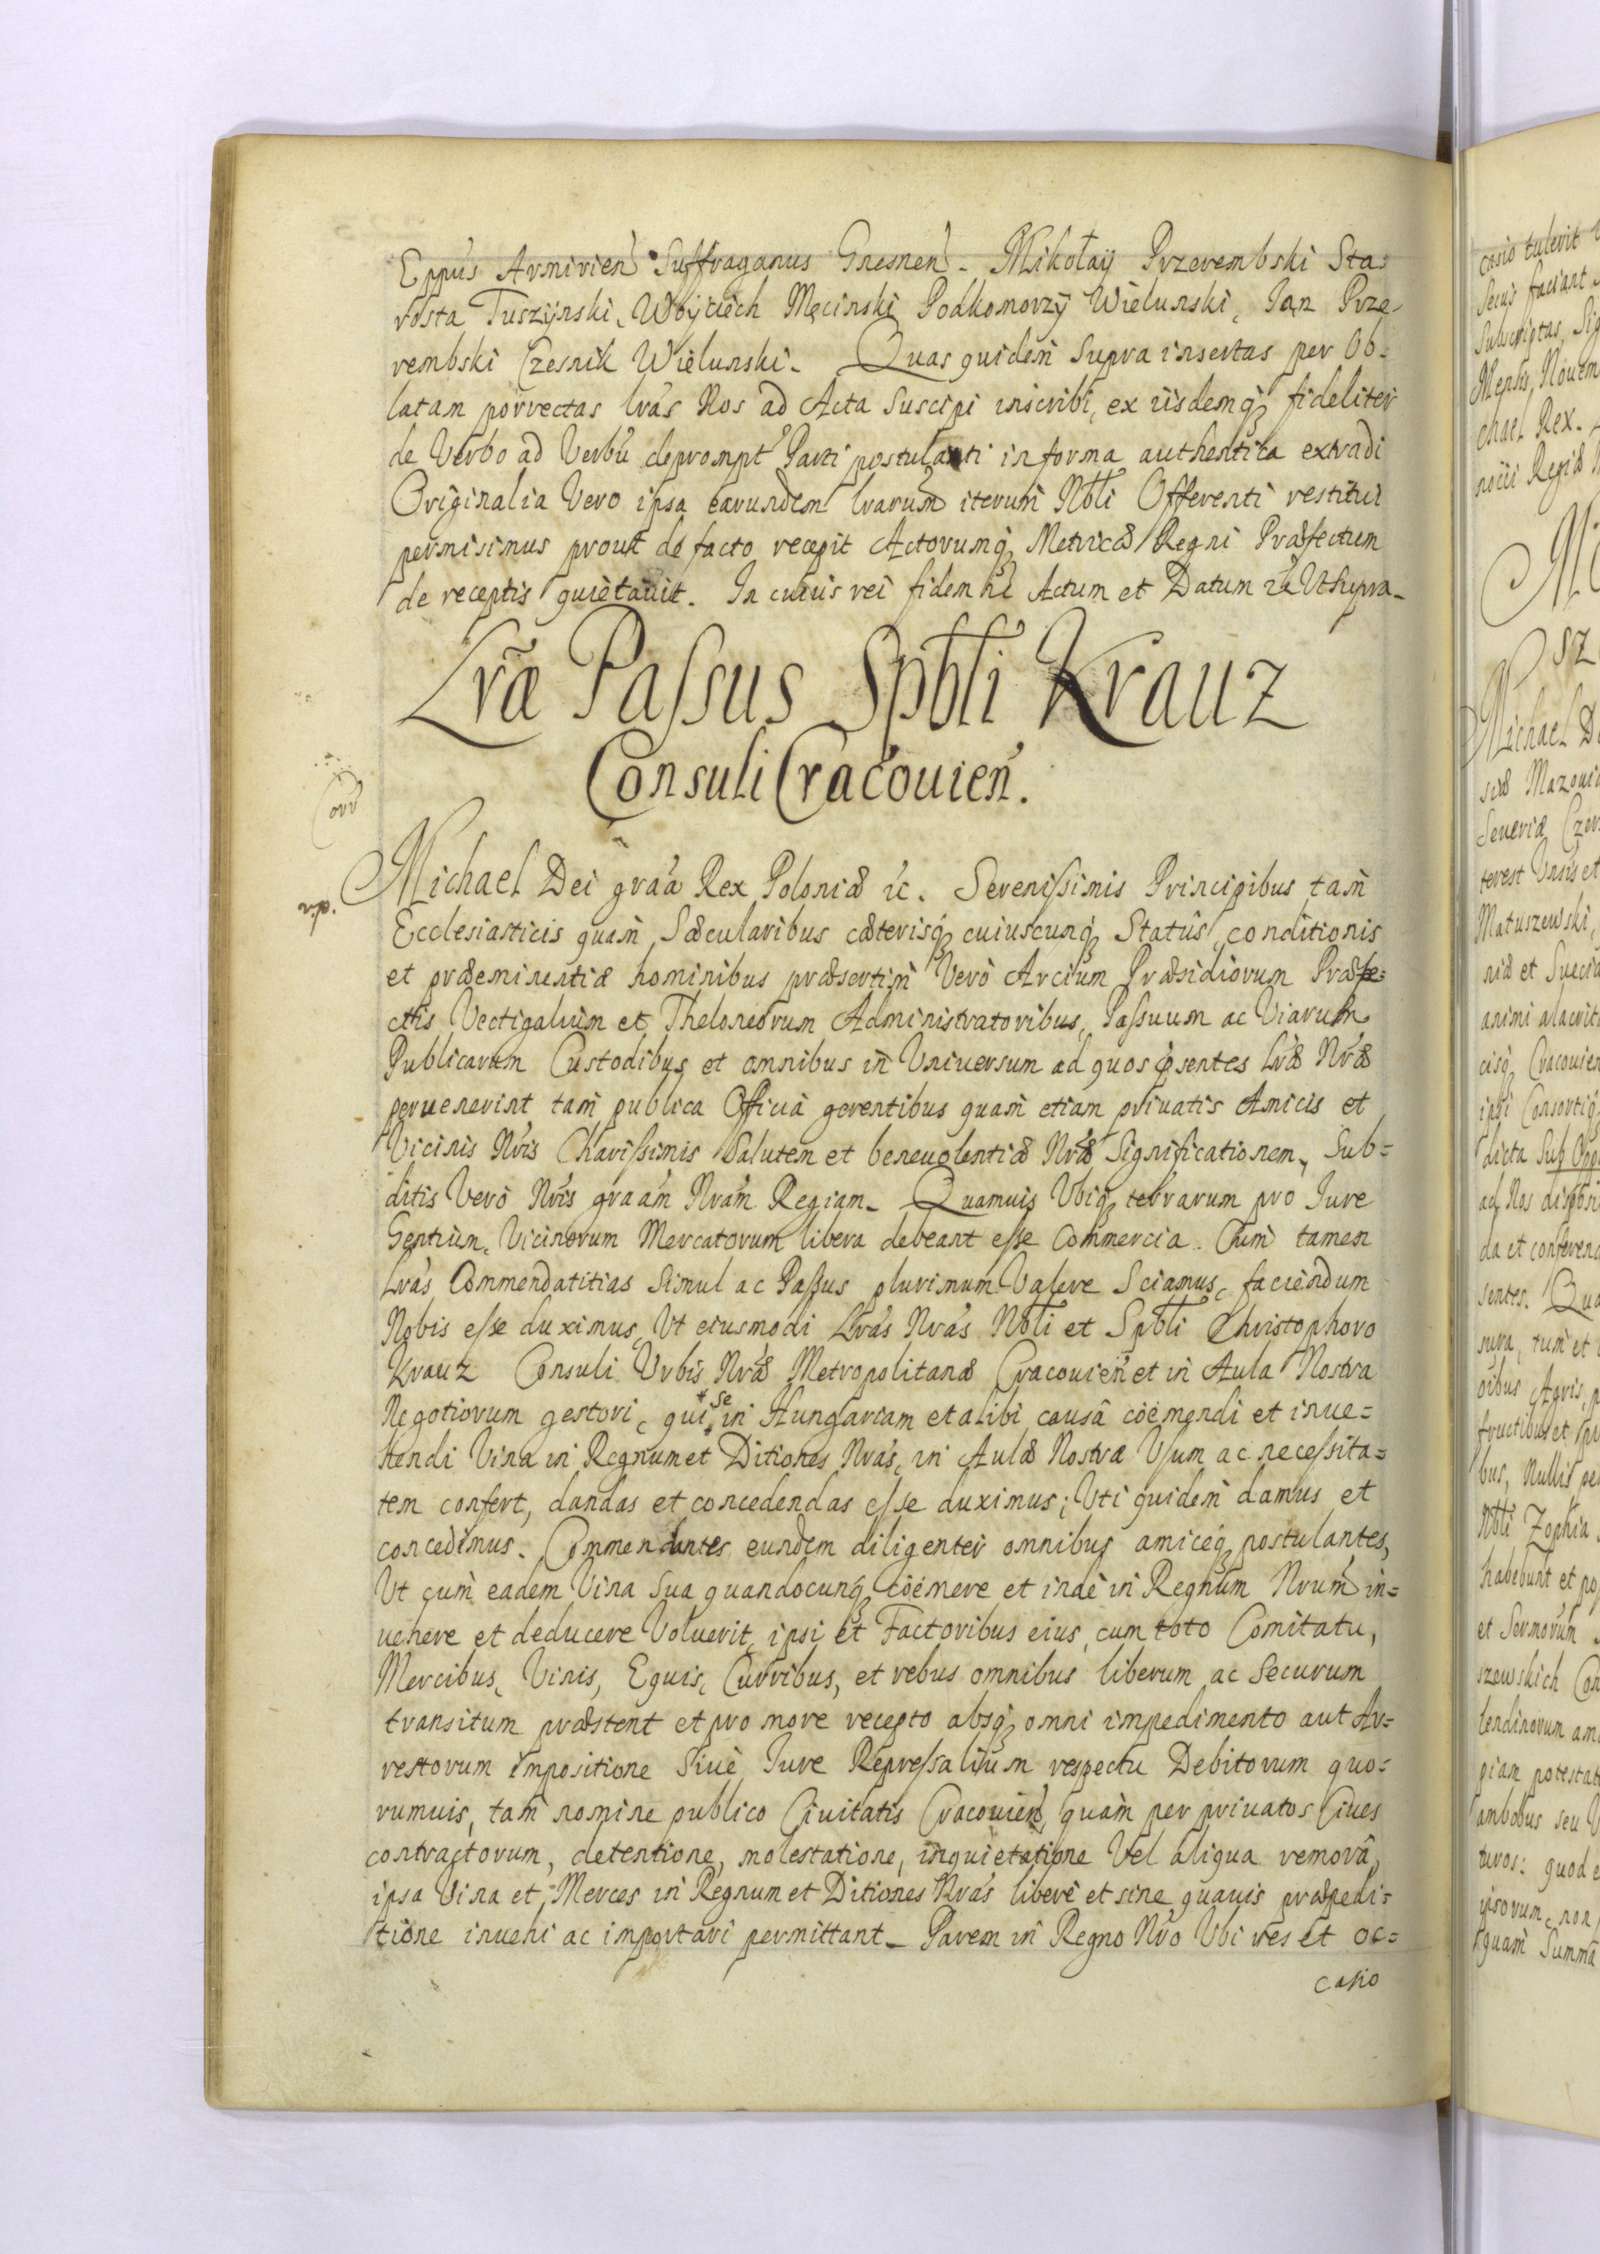 Eppus Armirien Suffraganus Gnesnen. Mikołaÿ Przerembski Sta=
rosta Tuszÿnski, Woÿciech Męcinski Podkomorzÿ Wielunski, Jan Prze-
rembski Czesnik Wielunski. Quas quidem supra insertas per Ob-
latam porrectas lrás Nos ad Acta suscipi inscribi, ex iisdemq; fideliter
de Verbo ad Verbũ deprompt Parti postulanti in forma authentica extradi
Originalia Vero ipsa earundem lrarum iterum Nbli Offerenti restitui
permisimus prout de facto recepit Actorumq; Metricæ Regni Præfectum
de receptis quietauit. In cuius rei fidem hi Actum et Datum &c Ut supra.
Lræ Passus Spbli Krauz
Consuli Cracouien.
Corr
Michael Dei graa Rex Poloniæ &c. Serenissimis Principibus tam
Ecclesiasticis quam Sæcularibus cæterisq; cuiuscunq; Status, conditionis
et præeminentiæ hominibus præsertim Vero Arcium Præsidiorum Præfe=
ctis Vectigalium et Theloneorum Administratoribus, Passuum ac Viarum
Publicarum Custodibus et omnibus in Vniuersum ad quos psentes lræ Nræ
peruenerint tam publica Officia gerentibus quam etiam priuatis Amicis et
Vicinis Nris Charissimis Salutem et beneuolentiæ Nræ Significationem, Sub=
ditis Vero Nris graam Nram Regiam. Quamuis Vbiq; terrarum pro Jure
Gentium, Vicinorum Mercatorum libera debeant esse Commercia. Cum tamen
Lras Commendatitias Simul ac Passus plurimum Valere Sciamus, faciendum
Nobis esse duximus, Vt eiusmodi Lras Nras Nbli et Spbli Christophoro
Krauz Consuli Vrbis Nræ Metropolitanæ Cracouien et in Aula Nostra
Negotiorum gestori, qui se in Hungariam et alibi causâ coëmendi et inue=
hendi Vina in Regnum et Ditiones Nras, in Aulæ Nostræ Vsum ac necessita=
tem confert, dandas et concedendas esse duximus; Vti quidem damus et
concedimus. Commendantes eundem diligenter omnibus amiceq; postulantes,
Vt cum eadem Vina Sua quandocunq; coëmere et inde in Regnum Nrum in=
uehere et deducere Voluerit, ipsi et Factoribus eius, cum toto Comitatu,
Mercibus, Vinis, Equis, Curribus, et rebus omnibus liberum ac Securum
transitum præstent et pro more recepto absq; omni impedimento aut Ar=
restorum impositione Siue Jure Repressalium respectu Debitorum quo=
rumuis, tam nomine publico Ciuitatis Cracouien, quam per priuatos Ciues
contractorum, detentione, molestatione, inquietatione Vel aliqua remorâ,
ipsa Vina et Merces in Regnum et Ditiones Nras libere et sine quauis præpedi=
tione inuehi ac importari permittant. Parem in Regno Nro Vbi res et oc=
casio